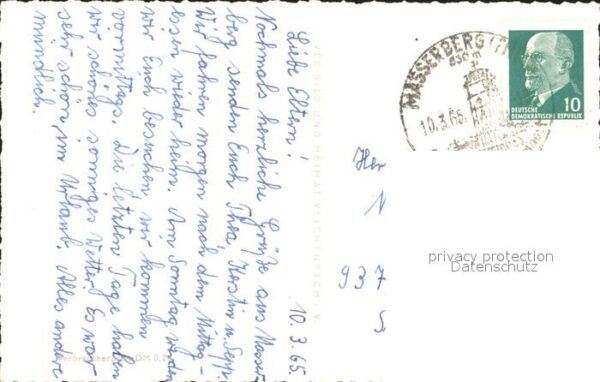 10.3.65.
Liebe Eltern!
Nochmals herzliche Grüße aus Masser-
berg senden Euch Thea, Kerstin u. Sepp.
Wir fahren morgen nach dem Mittag-
essen wieder heim. Am Sonntag werden
wir Euch besuchen, wir kommen
vormittags. Die letzten Tage haben
wir schönes sonniges Wetter. Es war
sehr schön im Urlaub. Alles andere
mündlich.
MASSERBERG
10.3.65
DEUTSCHE
DEMOKRATISCHE REPUBLIK
10
Her
N
937
S
privacy protection
Datenschutz